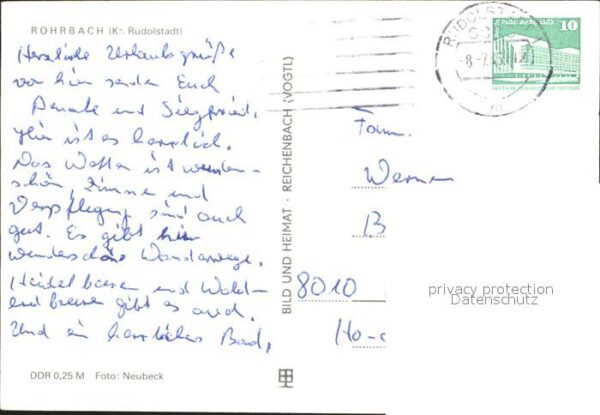 ROHRBACH (Kr. Rudolstadt)
Herzliche Urlaubsgrüße
von hier senden Euch
Renate und Siegfried.
Hier ist es herrlich.
Das Wetter ist wunder-
schön, Zimmer und
Verpflegung sind auch
gut. Es gibt hier
wunderschöne Wanderwege.
Heidelbeeren und Wald-
erdbeeren gibt es auch.
Und ein herrliches Bad.
DDR 0,25 M Foto: Neubeck
BILD UND HEIMAT · REICHENBACH (VOGTL)
RUDOLSTADT
-8.-7.
10
DEUTSCHE DEMOKRATISCHE REPUBLIK
Fam.
Werner
B
8010
privacy protection
Datenschutz